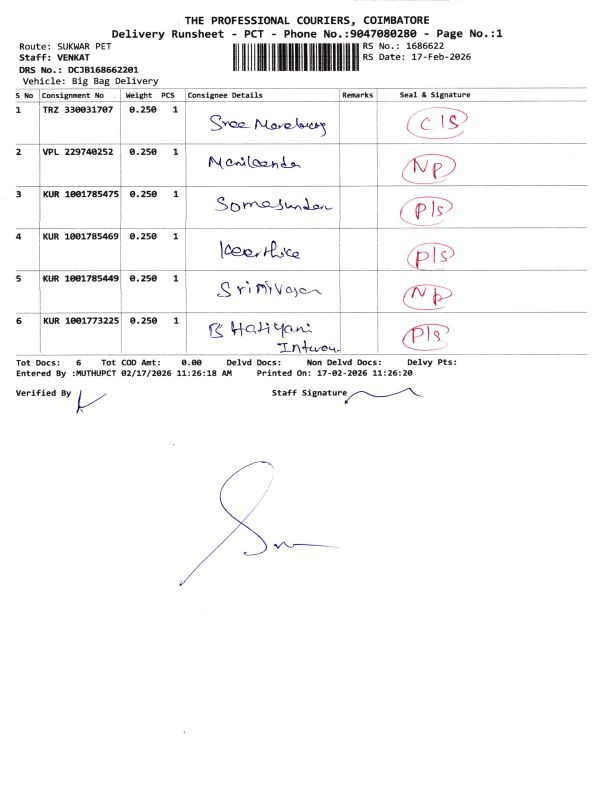 THE PROFESSIONAL COURIERS, COIMBATORE
Delivery Runsheet - PCT - Phone No.:9047080280 - Page No.:1
Route: SUKWAR PET RS No.: 1686622
Staff: VENKAT RS Date: 17-Feb-2026
DRS No.: DCJB168662201
Vehicle: Big Bag Delivery
S No Consignment No Weight PCS Consignee Details Remarks Seal & Signature
1 TRZ 330031707 0.250 1 Sree C/S
2 VPL 229740252 0.250 1 NP
3 KUR 1001785475 0.250 1 Somasundar P/s
4 KUR 1001785469 0.250 1 Keerthice P/s
5 KUR 1001785449 0.250 1 Srinivasan Np
6 KUR 1001773225 0.250 1 P/s
Tot Docs: 6 Tot COD Amt: 0.00 Delvd Docs: Non Delvd Docs: Delvy Pts:
Entered By :MUTHUPCT 02/17/2026 11:26:18 AM Printed On: 17-02-2026 11:26:20
Verified By Staff Signature